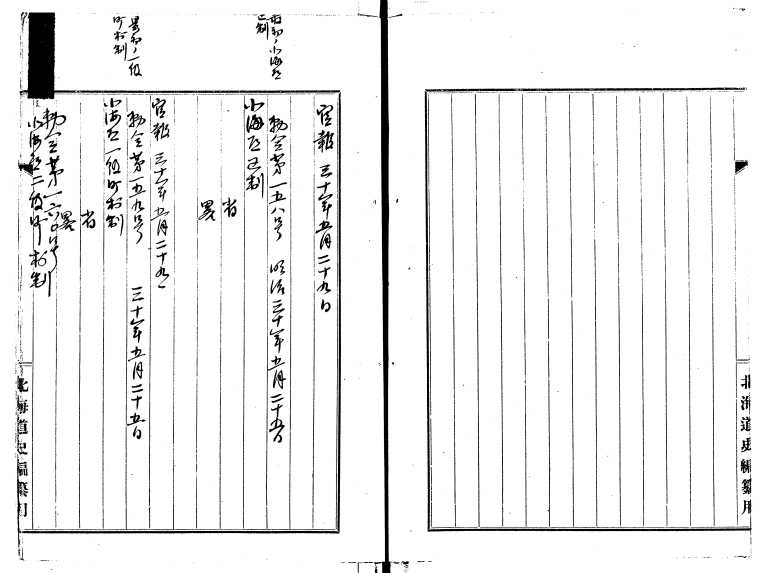 北海道史編纂用
最初ノ北海道
区制
官報 三十年五月二十九日
勅令第一五八号 明治三十年五月二十五日
北海道区制
省
畧
最初ノ一級
町村制
官報 三十年五月二十九
勅令第一五九号 三十年五月二十五日
北海道一級町村制
省
畧
勅令第一六〇号
北海道二級町村制
北海道史編纂用